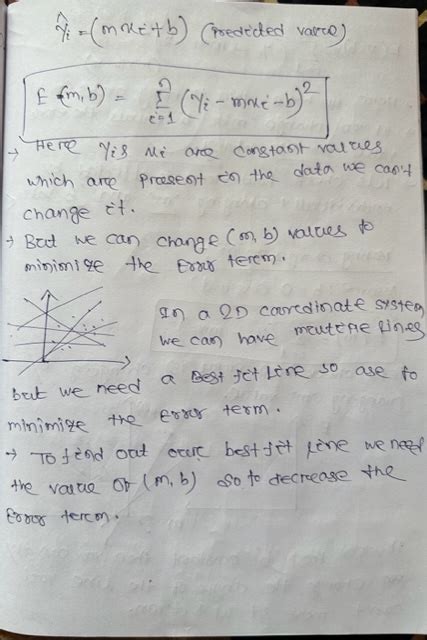 ŷi = (mxi + b) (predicted value)
E (m, b) = n Σ i=1 (yi - mxi - b)²
→ Here yi & xi are constant values
which are present in the data we can't
change it.
→ But we can change (m, b) values to
minimize the Error term.
In a 2D coordinate system
we can have multiple lines
but we need a Best fit Line so as to
minimize the error term.
→ To find out our best fit line we need
the value of (m, b) so to decrease the
Error term.